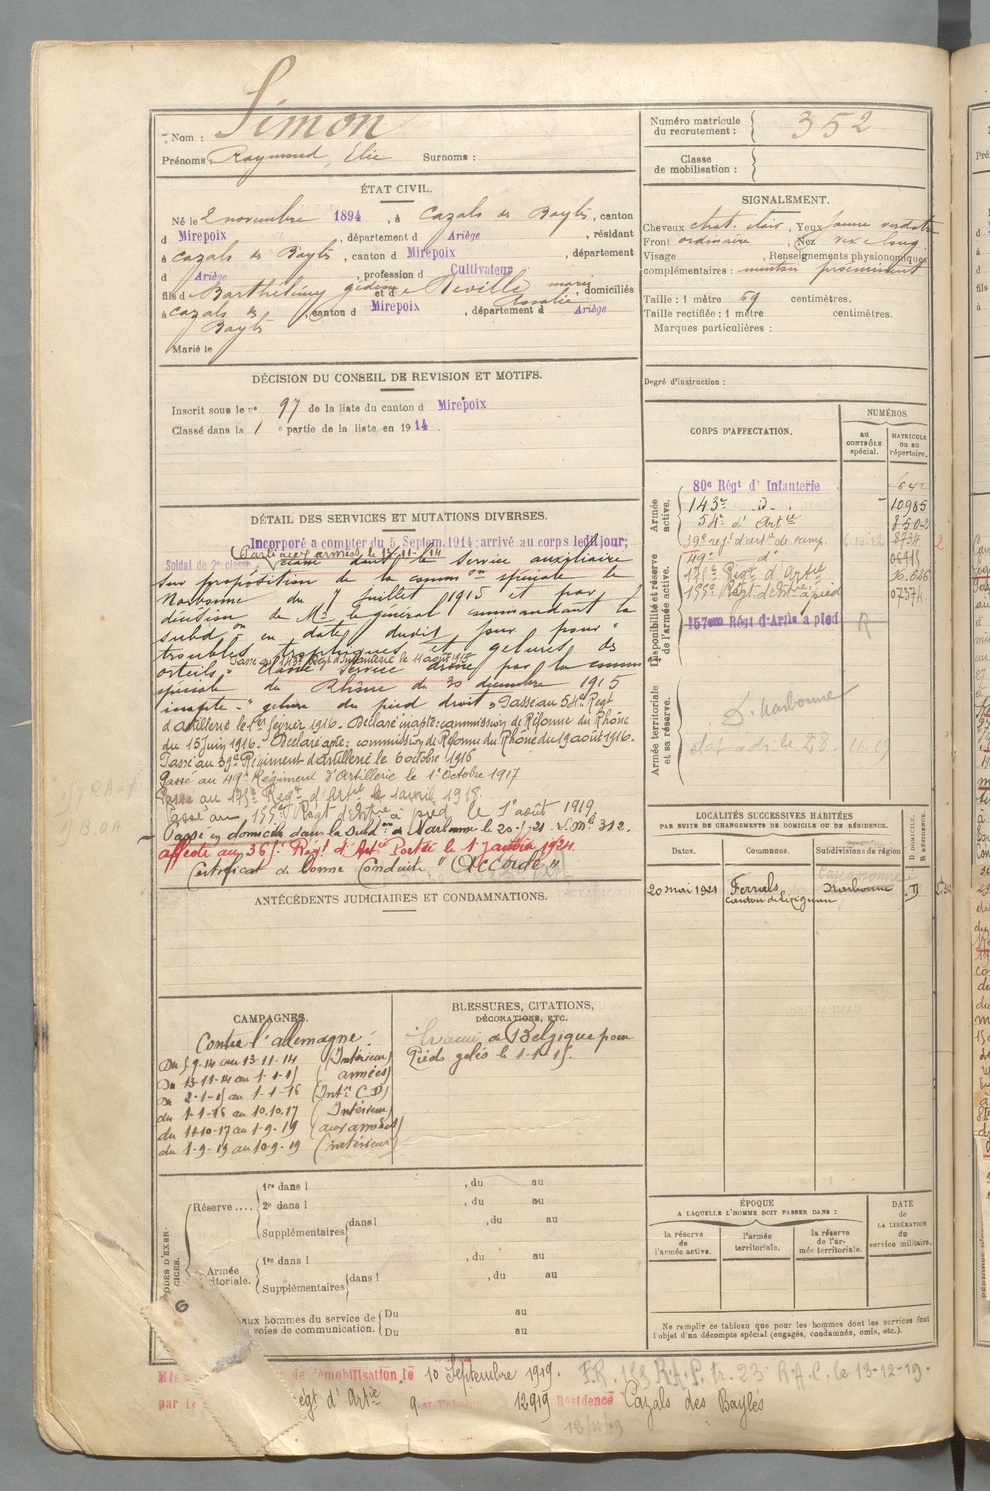 Nom : Simon
Prénoms : Raymond, Élie Surnoms :
Numéro matricule du recrutement : 352
Classe de mobilisation :
ÉTAT CIVIL.
Né le 2 novembre 1894, à Cazals des Baylès, canton
d Mirepoix, département d Ariège, résidant
à Cazals des Baylès, canton d Mirepoix, département
d Ariège, profession d Cultivateur
fils d Barthélémy gédéon et d e Neville marie Rosalie, domiciliés
à Cazals des Baylès, canton d Mirepoix, département d Ariège
Marié le
SIGNALEMENT.
Cheveux chat. clair, Yeux jaune verdatre
Front ordinaire, Nez
Visage , Renseignements physionomiques
complémentaires : menton proéminent
Taille : 1 mètre 59 centimètres.
Taille rectifiée : 1 mètre centimètres.
Marques particulières :
Degré d'instruction :
DÉCISION DU CONSEIL DE REVISION ET MOTIFS.
Inscrit sous le n° 97 de la liste du canton d Mirepoix
Classé dans la 1 e partie de la liste en 1914.
DÉTAIL DES SERVICES ET MUTATIONS DIVERSES.
Incorporé à compter du 5 Septem. 1914; arrivé au corps ledit jour;
Parti aux armées le 13-11-14
Soldat de 2e classe. Classé dans le Service auxiliaire
sur proposition de la common spéciale de
Narbonne du 7 Juillet 1915 et par
décision de Mr le général commandant la
subdon en date dudit jour pour "
troubles trophiques et gelures des
Passé au 143e Régt d'Infanterie le 11 août 1915
orteils". Classé Service armé par la comm
spéciale du Rhône du 30 décembre 1915
"inapte - " gelure du pied droit". Passé au 54e Régt
d'artillerie le 1er février 1916. Déclaré inapte: commission de Réforme du Rhône
du 15 juin 1916. Déclaré apte: commission de Réforme du Rhône du 19 août 1916.
Passé au 39e Régiment d'artillerie le 6 octobre 1916
Passé au 49e Régiment d'Artillerie le 1er Octobre 1917
Passé au 175e Régt d'Artie le 1 avril 1918.
Passé au 155e Régt d'Artie à pied le 1er août 1919
Passé en domicile dans la Subdon de Narbonne le 20-5-21. 312.
affecté au 36e Régt d'Artie Portée le 1er Janvier 1924
Certificat de bonne Conduite "Accordé"
CORPS D'AFFECTATION.
NUMÉROS
au CONTRÔLE spécial.
MATRICULE ou au répertoire.
Armée active.
80e Régt d'Infanterie 642
143e d. 10985
54e d'Artie 8502
39e régt d'art. de camp. 8734
Disponibilité et réserve de l'armée active.
49e d° 04915
175e Régt d'Artie
155e Régt d'Artie à pied
157em Régt d'Artie à pied R
Armée territoriale et sa réserve.
D. Narbonne
LOCALITÉS SUCCESSIVES HABITÉES
PAR SUITE DE CHANGEMENTS DE DOMICILE OU DE RÉSIDENCE.
Dates. Communes. Subdivisions de région. D DOMICILE. R RÉSIDENCE.
Carcassonne
20 mai 1921 Ferrals canton de Lézignan Narbonne D
ANTÉCÉDENTS JUDICIAIRES ET CONDAMNATIONS.
CAMPAGNES.
Contre l'allemagne :
Du 5-9-14 au 13-11-14 (Intérieur)
Du 13-11-14 au 1-1-15 (armées)
Du 2-1-15 au 1-1-16 (Intr C.D)
du 1-1-16 au 10.10.17 (Intérieur)
du 11-10-17 au 1-9-19 (aux armées)
du 1-9-19 au 10-9-19 (intérieur)
BLESSURES, CITATIONS,
DÉCORATIONS, ETC.
Évacué de Belgique pour
Pieds gelés le 1-1-15.
Réserve ....
1re dans l , du au
2e dans l , du au
Supplémentaires dans l , du au
Armée
1re dans l , du au
Supplémentaires dans l , du au
aux hommes du service de
voies de communication.
Du au
Du au
ÉPOQUE
A LAQUELLE L'HOMME DOIT PASSER DANS :
la réserve de l'armée active.
l'armée territoriale.
la réserve de l'armée territoriale.
DATE de LA LIBÉRATION du service militaire.
Ne remplir ce tableau que pour les hommes dont les services font
l'objet d'un décompte spécial (engagés, condamnés, omis, etc.).
6
de démobilisation le 10 Septembre 1919. F.R. 155 R.A.P. tr. 23 R.A.C. le 13-12-19.
par le Régt d'Artie 12919 Résidence Cazals des Baylès